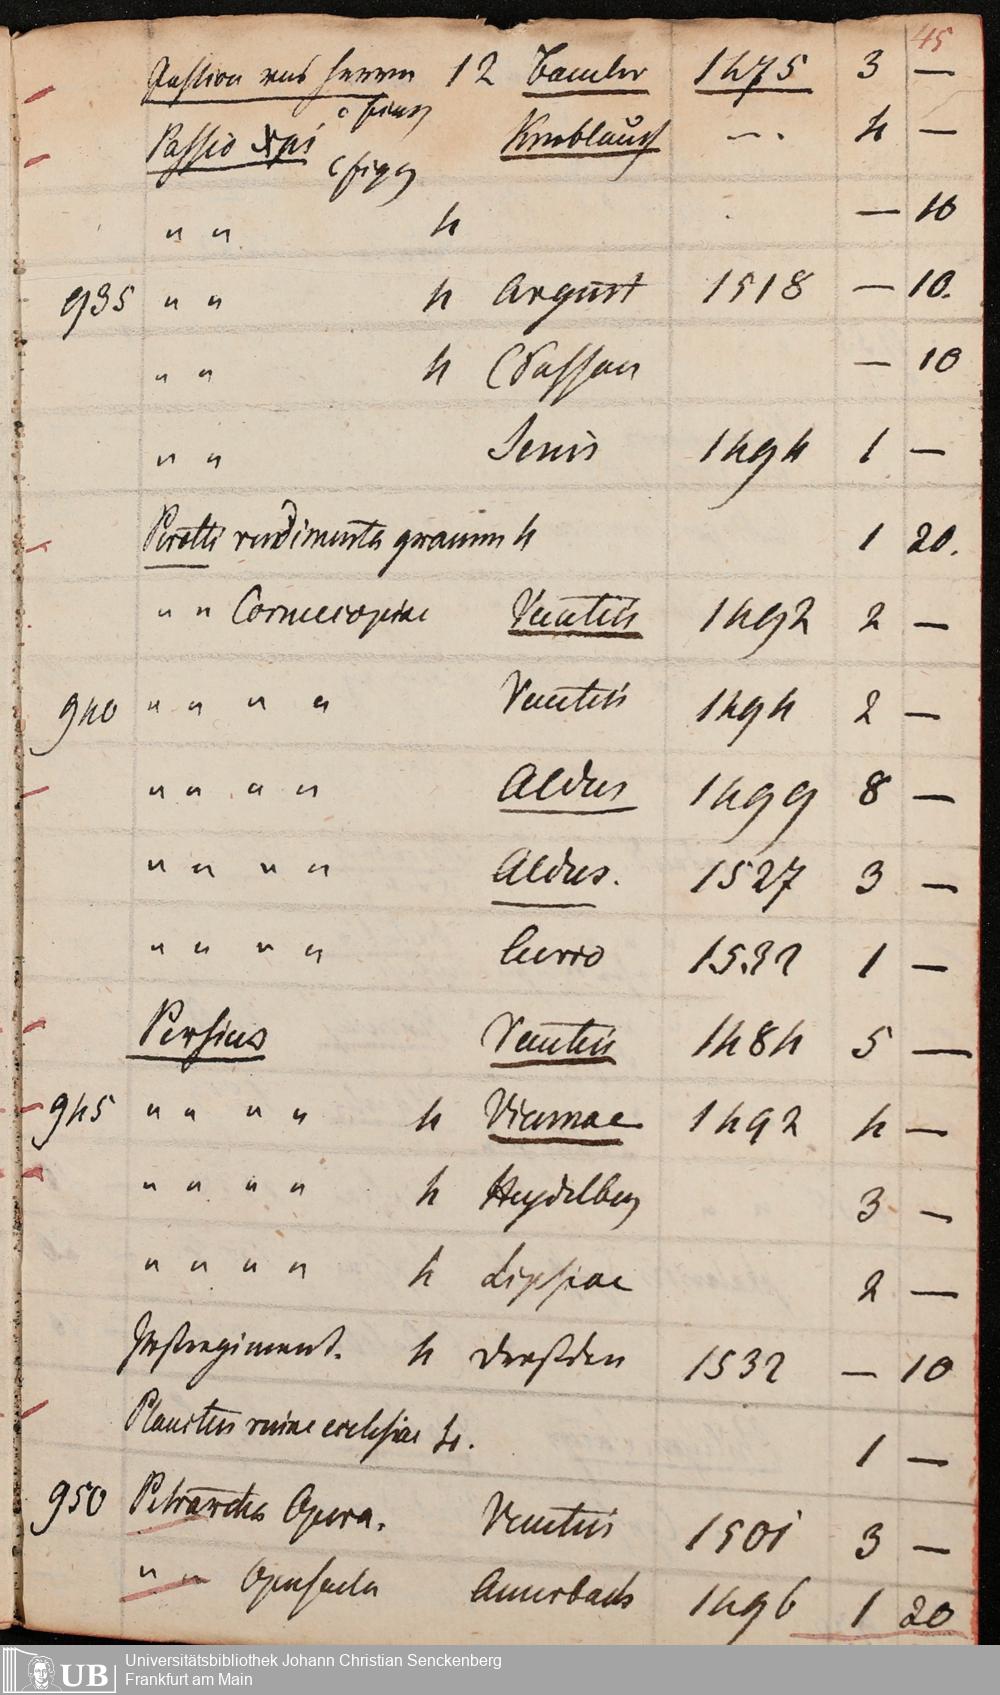 45
Passion uns herrn 12 Bamler 1475 3 —
c figg
Passio Xpi Knoblauch — . 4 —
c figg
" " 4 — 10
935 " " 4 Argent 1518 — 10.
" " 4 Passau — 10
" " Senis 1494 1 —
Perotti rudimenta gramm 4 1 20.
" " Cornucopiae Venetiis 1492 2 —
940 " " " " Venetiis 1494 2 —
" " " " Aldus 1499 8 —
" " " " Aldus. 1527 3 —
" " " " Curio 1532 1 —
Persius Venetiis 1484 5 —
945 " " " " 4 Viennae 1492 4 —
" " " " 4 Heydelberg 3 —
" " " " 4 Lipsiae 2 —
Pestregiment. 4 Dresden 1532 — 10
Planctus ruine ecclesiae 4. 1 —
950 Petrarcha Opera. Venetiis 1501 3 —
" " Opuscula Amerbach 1496 1 20
UB Universitätsbibliothek Johann Christian Senckenberg
Frankfurt am Main